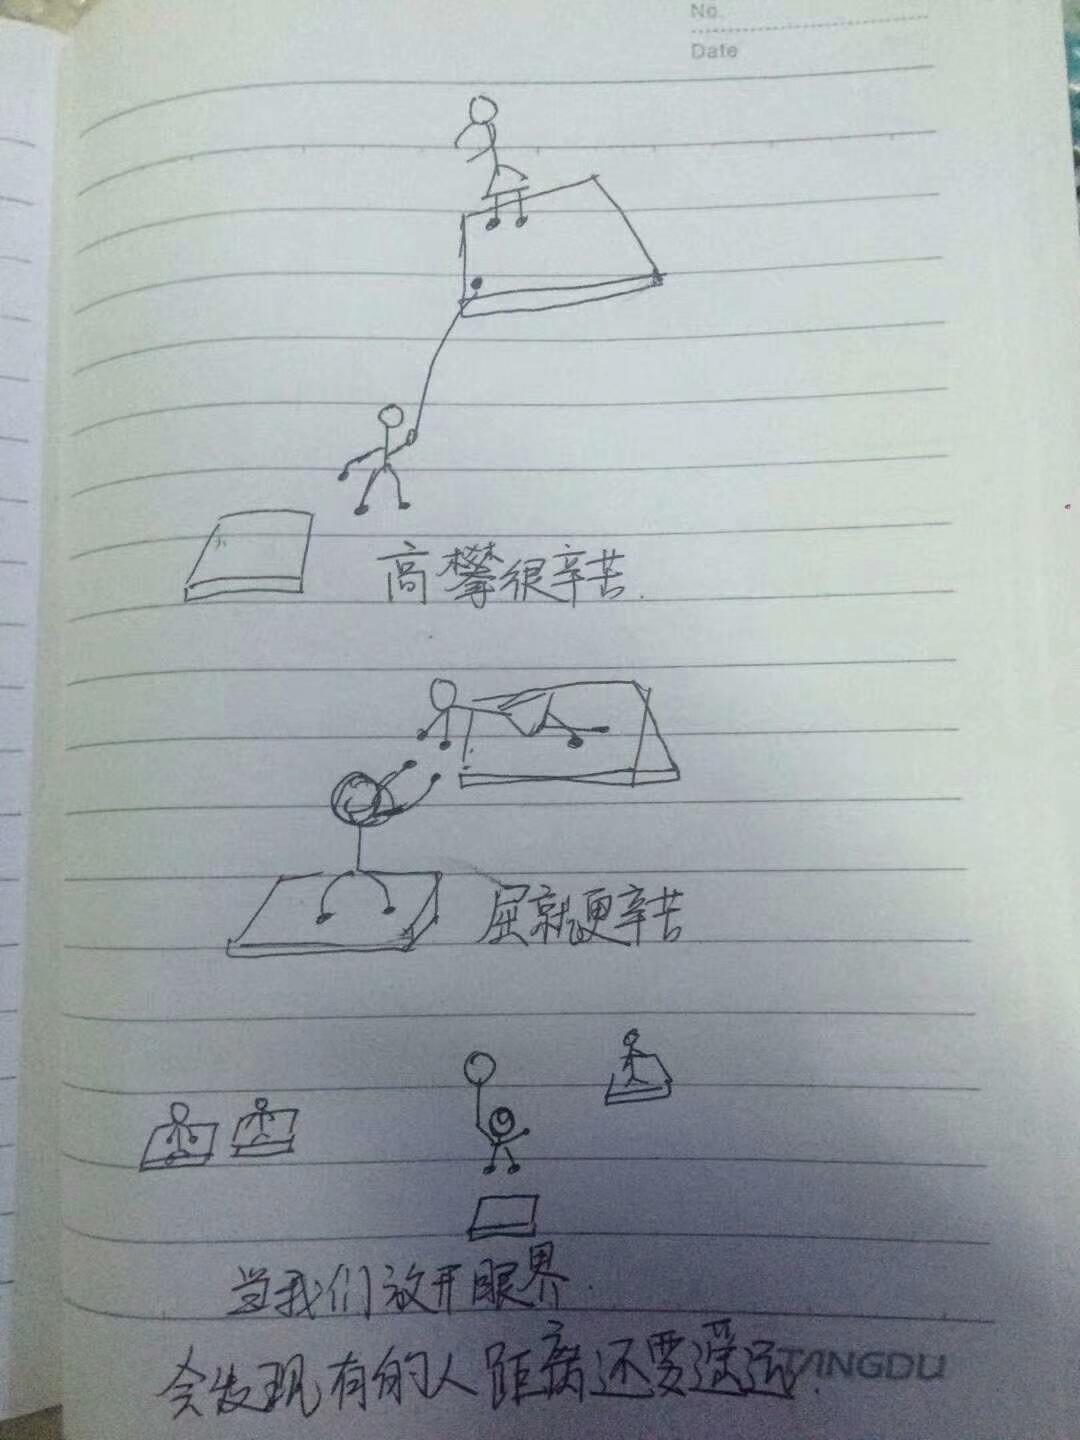 No.
Date
高攀很辛苦.
屈就更辛苦
当我们放开眼界.
会发现有的人距离还要遥远.
TANGDU